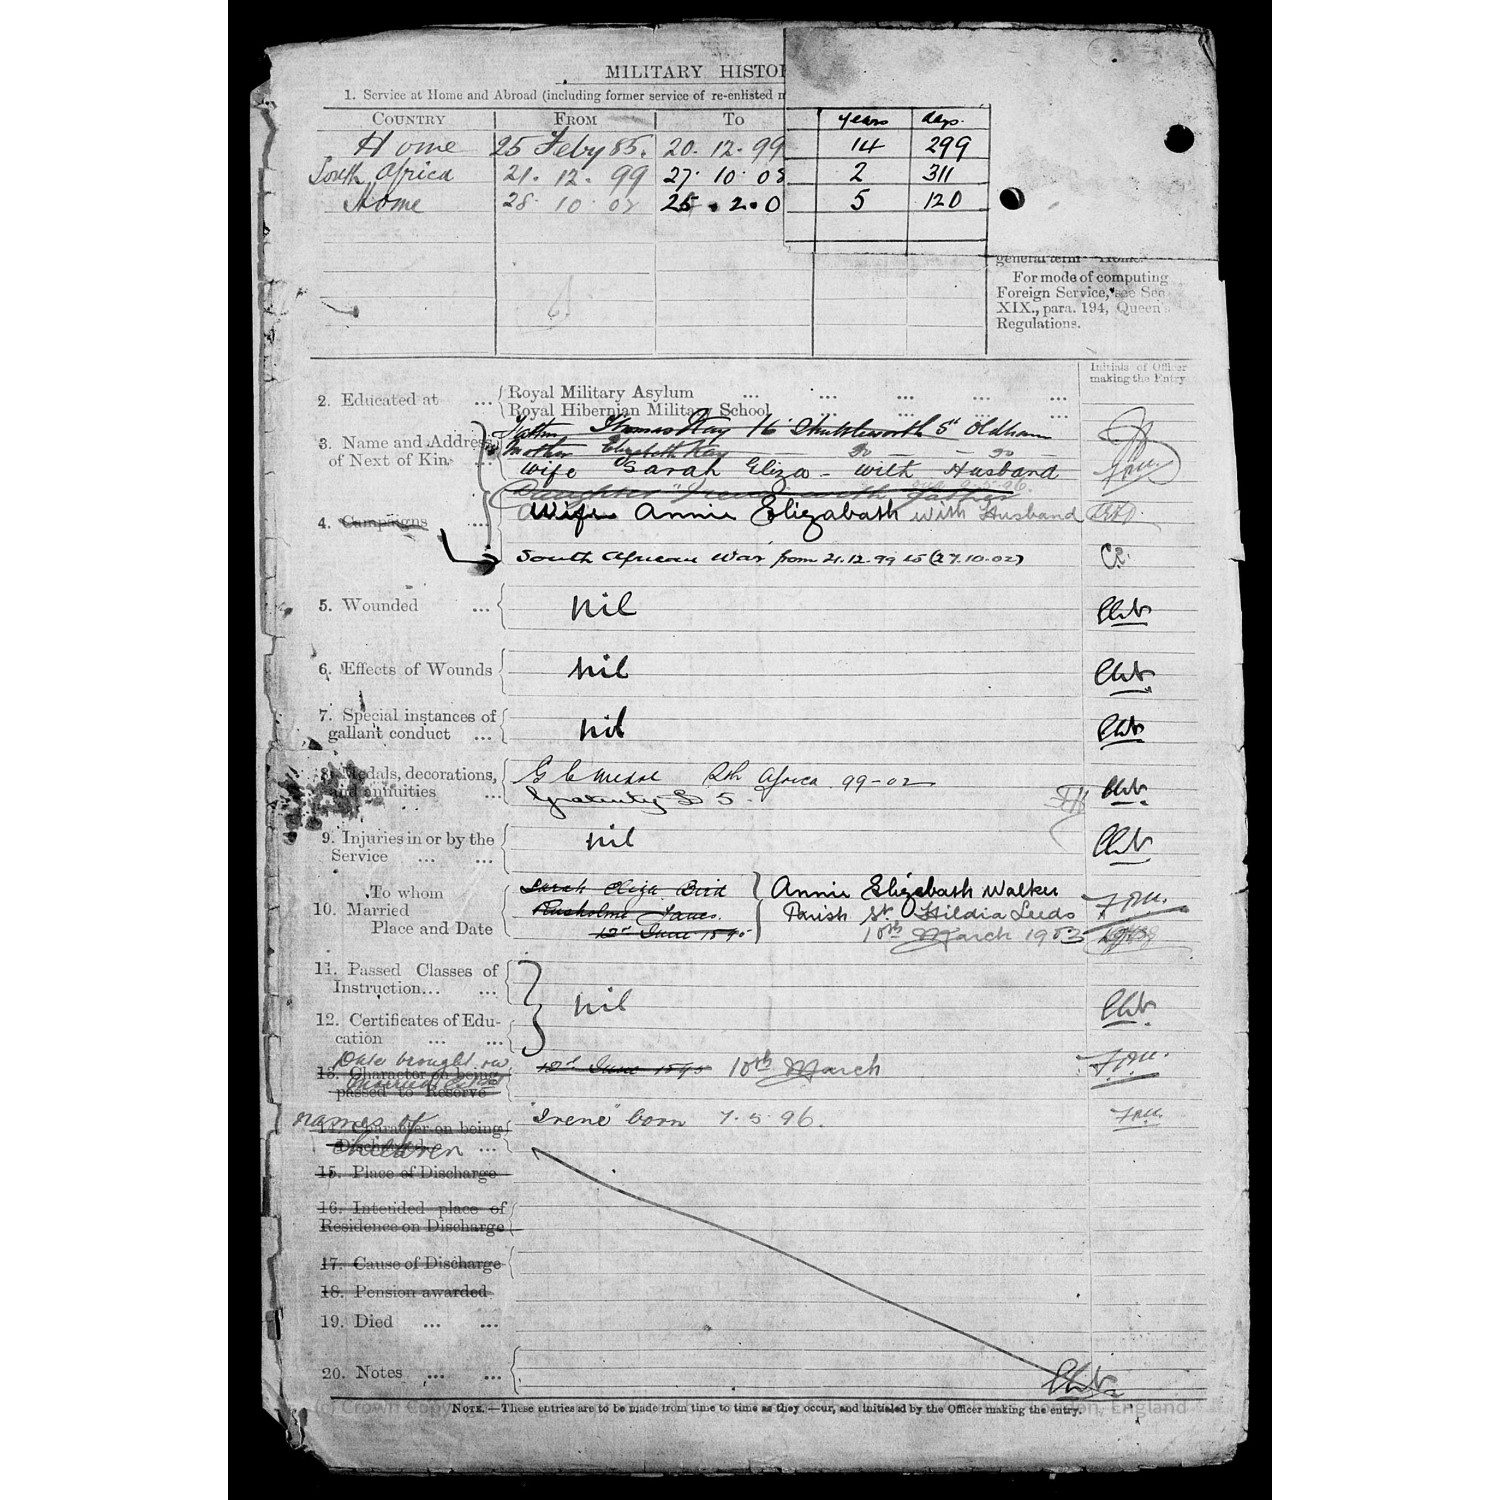 MILITARY HISTOR
1. Service at Home and Abroad (including former service of re-enlisted m
COUNTRY FROM TO years days.
Home 25 Feby 85. 20.12.99 14 299
South Africa 21.12.99 27.10.02 2 311
Home 28 10 02 25.2.0 5 120
general term "Home."
For mode of computing
Foreign Service, see Sec
XIX., para. 194, Queen's
Regulations.
Initials of Officer
making the Entry
2. Educated at ... Royal Military Asylum ... ... ... ...
Royal Hibernian Military School ... ... ... ...
3. Name and Address
of Next of Kin. ...
Father Thomas Kay 16 Shuttleworth St Oldham
Mother Elizabeth Kay — Do — — Do —
Wife Sarah Eliza - with Husband
Daughter "Irene" with father
4. Campaigns ... Wife Annie Elizabath with Husband
South African War from 21.12.99 to (27.10.02)
5. Wounded ... nil
6. Effects of Wounds nil
7. Special instances of
gallant conduct ... nil
8. Medals, decorations,
and annuities ...
G C Medal Sth Africa 99-02
Gratuity £ 5.
9. Injuries in or by the
Service ... ... nil
To whom
10. Married
Place and Date
Sarah Eliza Bird Annie Elizabath Walker
Rusholme Lancs. Parish St. Hildia Leeds
12th June 1895 10th March 1903
11. Passed Classes of
Instruction... ...
nil
12. Certificates of Edu-
cation ... ...
Date brought on
13. Character on being 12th June 1895 10th March
passed to Reserve
names of "Irene" born 7.5.96.
14. Character on being
Discharged ...
children
15. Place of Discharge
16. Intended place of
Residence on Discharge
17. Cause of Discharge
18. Pension awarded
19. Died ... ...
20. Notes ... ...
NOTE.—These entries are to be made from time to time as they occur, and initialed by the Officer making the entry.